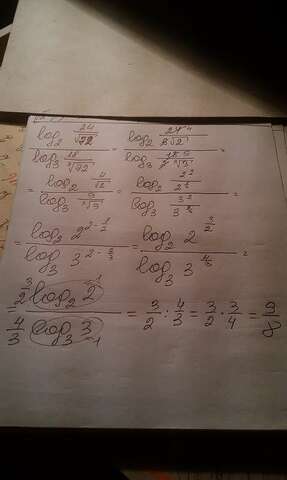 log₂ 24/√72 / log₃ 18/∛72 = log₂ 24⁴/6√2 / log₃ 18⁹/2∛9 =
= log₂ 4/√2 / log₃ 9/∛9 = log₂ 2²/2^(1/2) / log₃ 3²/3^(2/3) =
= log₂ 2^(2-1/2) / log₃ 3^(2-2/3) = log₂ 2^(3/2) / log₃ 3^(4/3) =
= 3/2 log₂ 2 -1 / 4/3 log₃ 3 -1 = 3/2 : 4/3 = 3/2 · 3/4 = 9/8